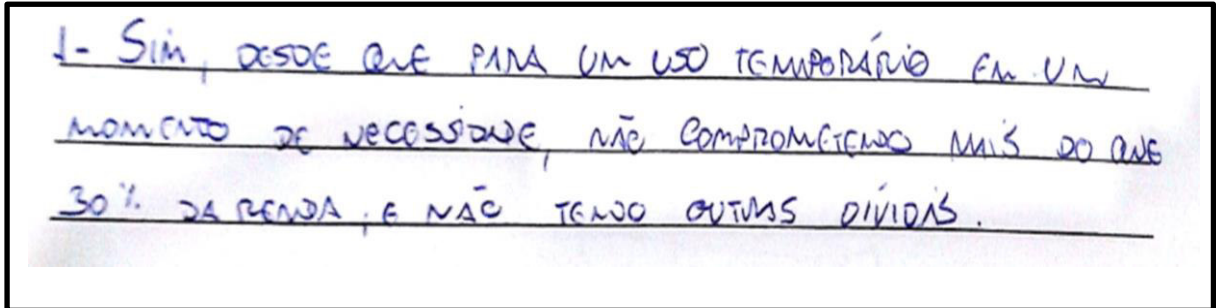 1- SIM, DESDE QUE PARA UM USO TEMPORÁRIO EM UM
MOMENTO DE NECESSIDADE, NÃO COMPROMETENDO MAIS DO QUE
30% DA RENDA, E NÃO TENDO OUTRAS DÍVIDAS.